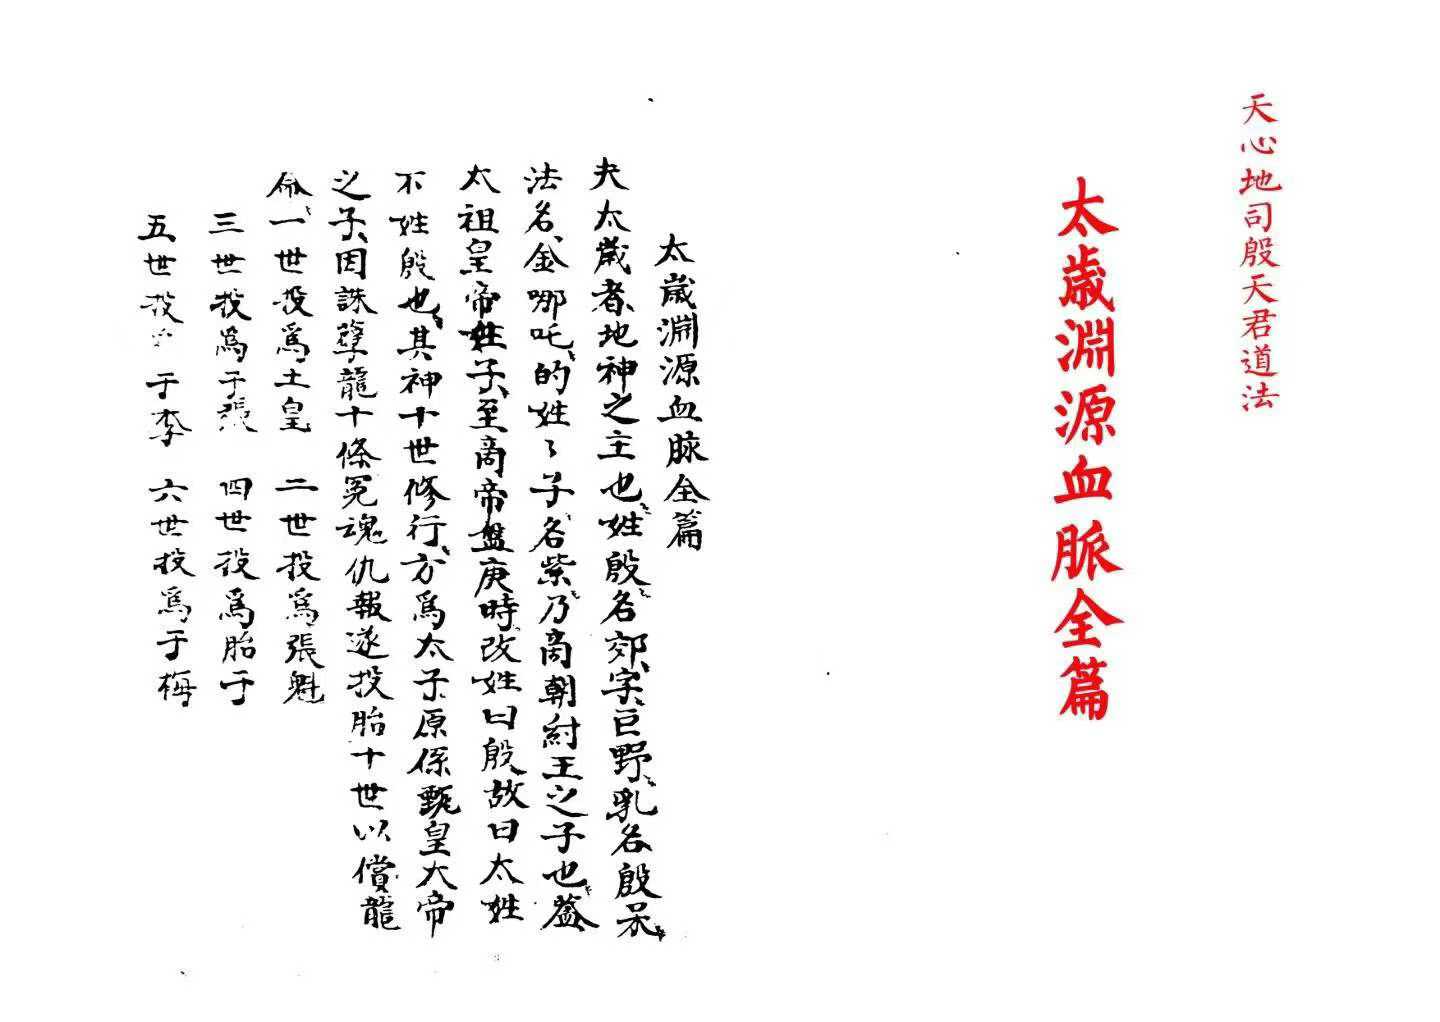 天心地司殷天君道法
太歲淵源血脉全篇
太歲淵源血脉全篇
夫太歲者地神之主也姓殷名郊字巨野乳名殷呆
法名金哪吒的姓〻子名紫乃商朝紂王之子也蓋
太祖皇帝姓子至商帝盤庚時改姓曰殷故曰太姓
不姓殷也其神十世修行方爲太子原係甄皇大帝
之子因誅孽龍十條冤魂仇報遂投胎十世以償龍
命一世投爲土皇 二世投爲張魁
三世投爲于張 四世投爲胎于
五世投于李 六世投爲于梅